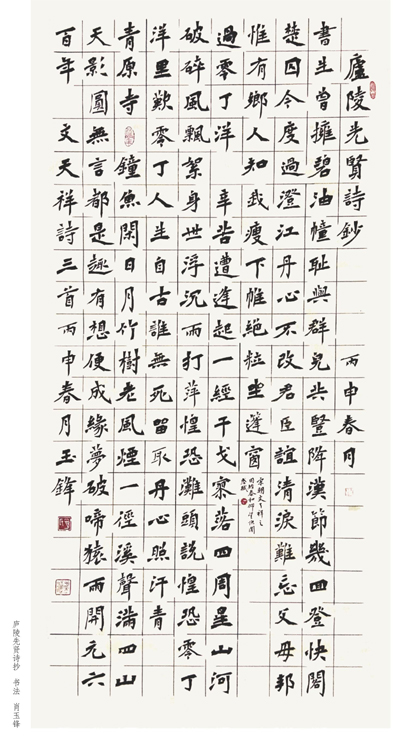 廬陵先賢詩鈔 丙申春月
書生曾擁碧油幢恥與群兒共豎降漢節幾回登快閣
楚囚今度過澄江丹心不改君臣誼清淚難忘父母邦
惟有鄉人知我瘦下帷絕粒坐蓬窗
過零丁洋 辛苦遭逢起一經干戈寥落四周星山河
破碎風飄絮身世浮沉雨打萍惶恐灘頭說惶恐零丁
洋里歎零丁人生自古誰無死留取丹心照汗青
青原寺 鐘魚閑日月竹樹老風煙一徑溪聲滿四山
天影圓無言都是趣有想便成緣夢破啼猿雨開元六
百年 文天祥詩三首丙申春月玉鋒
庐陵先贤诗抄 书法 肖玉锋